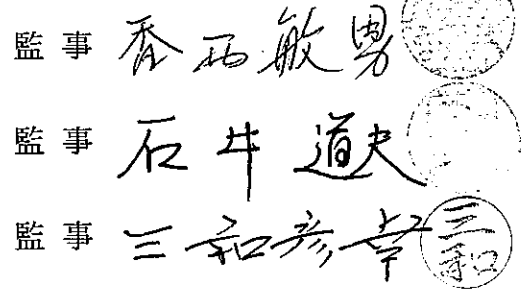 監事 香西敏男
監事 石井道夫
監事 三和彦幸 三和